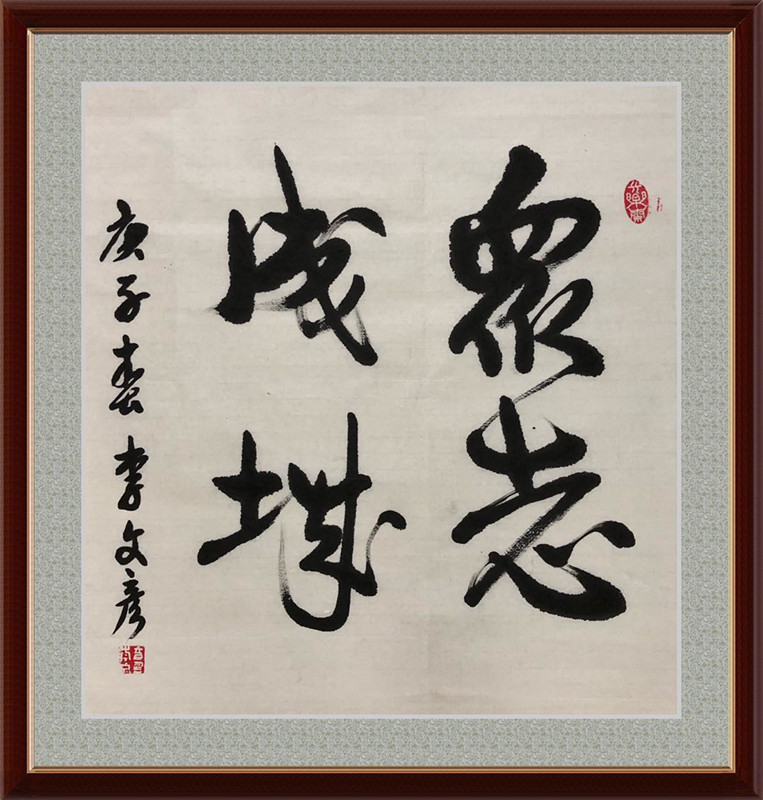 眾志
成城
庚子春 李文彦